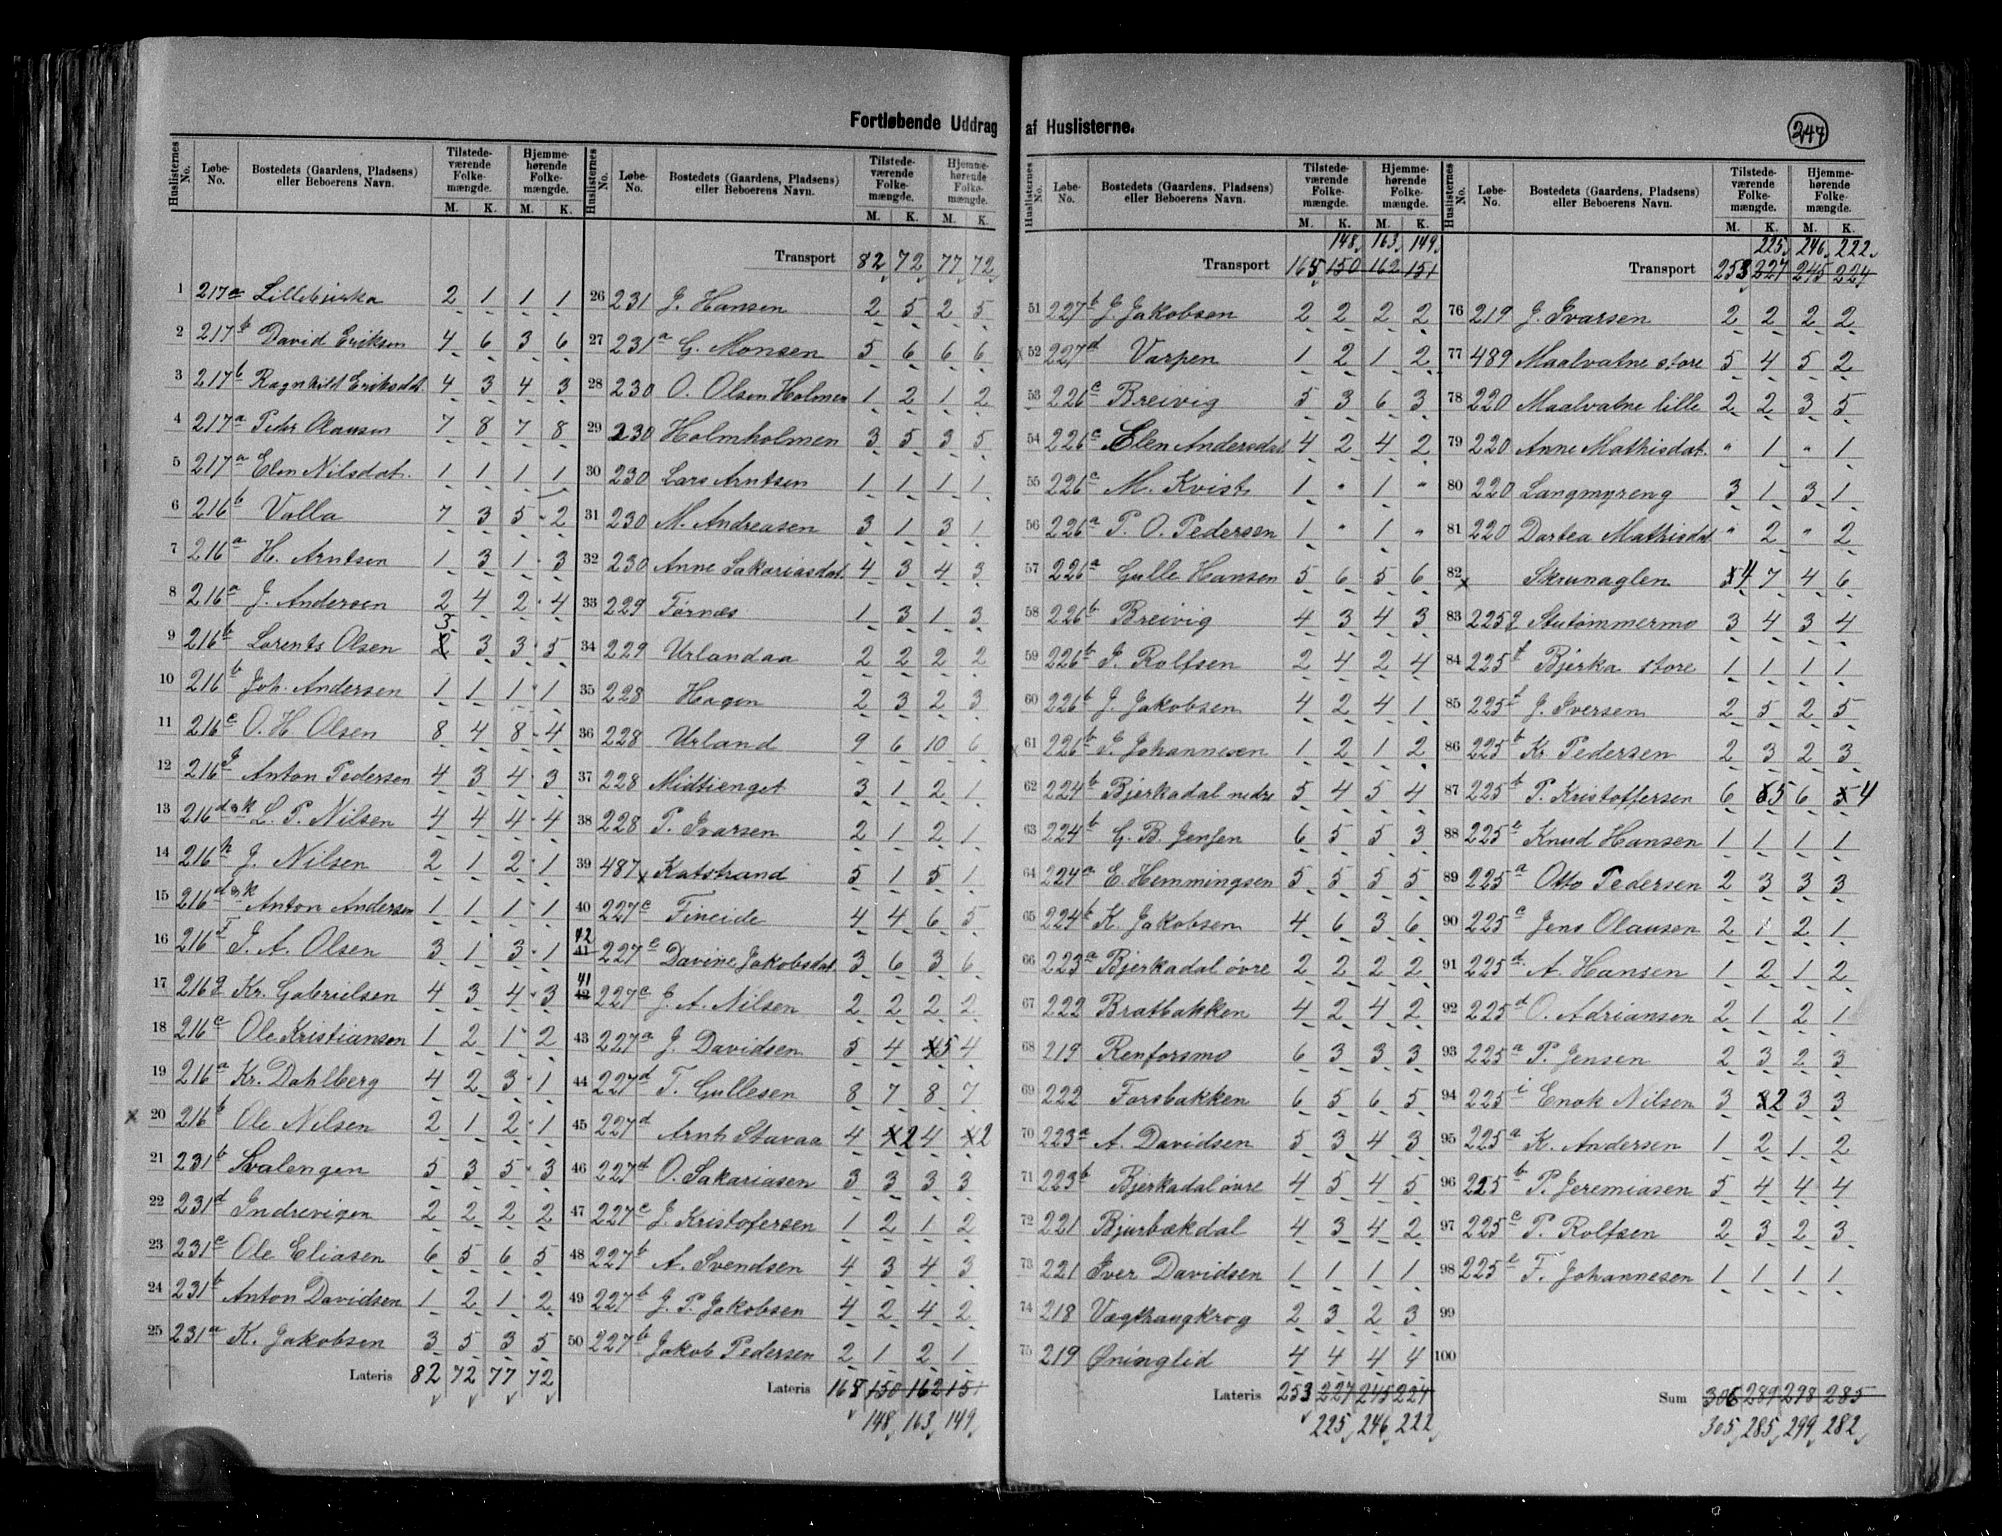 Fortløbende Uddrag af Huslisterne.
247
Huslisternes No. Løbe-No. Bostedets (Gaardens, Pladsens) eller Beboerens Navn. Tilstedeværende Folkemængde. M. K. Hjemmehørende Folkemængde. M. K.
1 217a Lillebjerka 2 1 1 1
2 217b David Eriksen 4 6 3 6
3 217b Ragnhild Eriksdat. 4 3 4 3
4 217a Peder Olausen 7 8 7 8
5 217a Elen Nilsdat. 1 1 1 1
6 216b Valla 7 3 5 2
7 216a H. Arntsen 1 3 1 3
8 216a J. Andersen 2 4 2 4
9 216b Lorents Olsen 3 3 3 5
10 216b Joh. Andersen 1 1 1 1
11 216e O. H. Olsen 8 4 8 4
12 216g Anton Pedersen 4 3 4 3
13 216d&k L. P. Nilsen 4 4 4 4
14 216h J. Nilsen 2 1 2 1
15 216d&k Anton Andersen 1 1 1 1
16 216f J. A. Olsen 3 1 3 1
17 216g Kr. Gabrielsen 4 3 4 3
18 216c Ole Kristiansen 1 2 1 2
19 216a Kr. Dahlberg 4 2 3 1
x 20 216b Ole Nilsen 2 1 2 1
21 231b Svalengen 5 3 5 3
22 231d Indrevigen 2 2 2 2
23 231c Ole Eliasen 6 5 6 5
24 231b Anton Davidsen 1 2 1 2
25 231a K. Jakobsen 3 5 3 5
Lateris 82 72 77 72
Huslisternes No. Løbe-No. Bostedets (Gaardens, Pladsens) eller Beboerens Navn. Tilstedeværende Folkemængde. M. K. Hjemmehørende Folkemængde. M. K.
Transport 82 72 77 72
26 231 J. Hansen 2 5 2 5
27 231a G. Monsen 5 6 6 6
28 230 O. Olsen Holmen 1 2 1 2
29 230 Holmholmen 3 5 3 5
30 230 Lars Arntsen 1 1 1 1
31 230 M. Andreasen 3 1 3 1
32 230 Anne Sakariasdat. 4 3 4 3
33 229 Fornes 1 3 1 3
34 229 Urlandaa 2 2 2 2
35 228 Hagen 2 3 2 3
36 228 Urland 9 6 10 6
37 228 Midtienget 3 1 2 1
38 228 P. Ivarsen 2 1 2 1
39 487 x Katstrand 5 1 5 1
40 227c Fineide 4 4 6 5
42 41 227c Davine Jakobsdat. 3 6 3 6
41 42 227c J. A. Nilsen 2 2 2 2
43 227a J. Davidsen 5 4 5 4
44 227d T. Gullesen 8 7 8 7
45 227d Arnh Stavaa 4 2 4 2
46 227d O. Sakariasen 3 3 3 3
47 227c J. Kristofersen 1 2 1 2
48 227b A. Svendsen 4 3 4 3
49 227b J. P. Jakobsen 4 2 4 2
50 227b Jakob Pedersen 2 1 2 1
Lateris 168 150 162 151
148 163 149
Huslisternes No. Løbe-No. Bostedets (Gaardens, Pladsens) eller Beboerens Navn. Tilstedeværende Folkemængde. M. K. Hjemmehørende Folkemængde. M. K.
148 163 149
Transport 165 150 162 151
51 227b J. Jakobsen 2 2 2 2
x 52 227d Varpen 1 2 1 2
53 226c Breivig 5 3 6 3
54 226c Elen Andersdat 4 2 4 2
55 226c M. Kvist 1 " 1 "
56 226a P. O. Pedersen 1 " 1 "
57 226a Gulle Hansen 5 6 5 6
58 226b Breivig 4 3 4 3
59 226b J. Rolfsen 2 4 2 4
60 226b J. Jakobsen 4 2 4 1
x 61 226b J. Johannesen 1 2 1 2
62 224b Bjerkadal nedre 5 4 5 4
63 224b G. B. Jensen 6 5 5 3
64 224a E. Hemmingsen 5 5 5 5
65 224b K. Jakobsen 4 6 3 6
66 223a Bjerkadal övre 2 2 2 2
67 222 Bratbakken 4 2 4 2
68 219 Renforsmo 6 3 3 3
69 222 Forsbakken 6 5 6 5
70 223a A. Davidsen 5 3 4 3
71 223b Bjerkadal övre 4 5 4 5
72 221 Bjurbækdal 4 3 4 2
73 221 Iver Davidsen 1 1 1 1
74 218 Vægthaugkrog 2 3 2 3
75 219 Øninglid 4 4 4 4
Lateris 253 227 245 224
225 246 222
Huslisternes No. Løbe-No. Bostedets (Gaardens, Pladsens) eller Beboerens Navn. Tilstedeværende Folkemængde. M. K. Hjemmehørende Folkemængde. M. K.
225 246 222
Transport 253 227 245 224
76 219 J. Ivarsen 2 2 2 2
77 489 Maalvatne store 5 4 5 2
78 220 Maalvatne lille 2 2 3 5
79 220 Anne Mathisdat. " 1 " 1
80 220 Langmyreng 3 1 3 1
81 220 Dortea Mathisdat " 2 " 2
82 x Skrunaglen 4 7 4 6
83 225g Stutømmermo 3 4 3 4
84 225f Bjerka store 1 1 1 1
85 225f J. Iversen 2 5 2 5
86 225b Kr. Pedersen 2 3 2 3
87 225b P. Kristoffersen 6 5 6 4
88 225e Knud Hansen 1 1 1 1
89 225a Otto Pedersen 2 3 3 3
90 225c Jens Olausen 2 1 2 1
91 225d A. Hansen 1 2 1 2
92 225d O. Adriansen 2 1 2 1
93 225a P. Jensen 2 3 2 3
94 225i Enok Nilsen 3 2 3 3
95 225a K. Andersen 1 2 1 2
96 225b P. Jeremiasen 5 4 4 4
97 225c P. Rolfsen 2 3 2 3
98 225e F. Johannesen 1 1 1 1
99
100
Sum 306 289 298 285
305 285 299 282